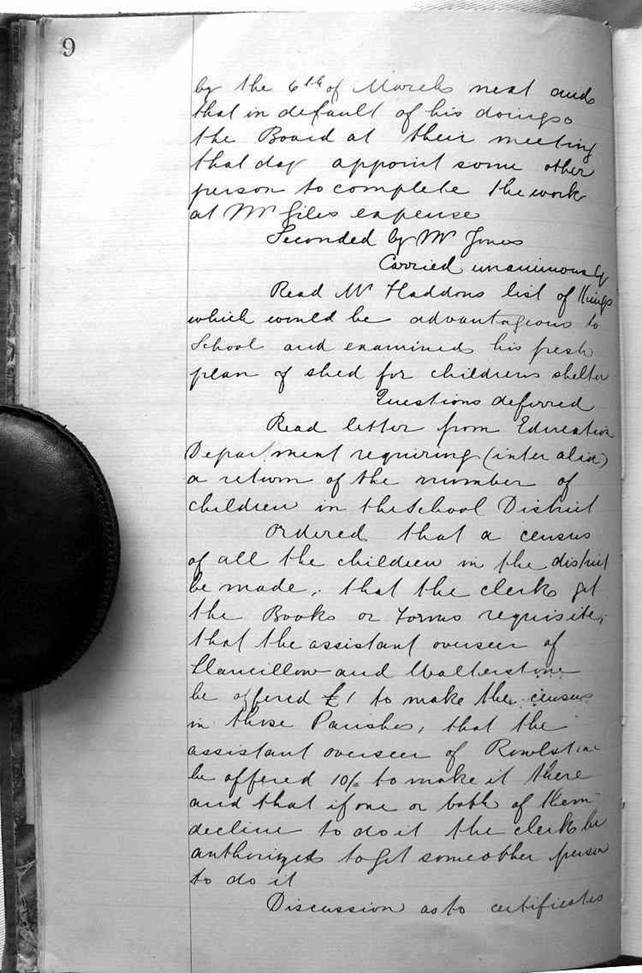 9
by the 6th of March next and
that in default of his doing so
the Board at their meeting
that day appoint some other
person to complete the work
at Mr Giles expense
Seconded by Mr Jones
Carried unanimously
Read Mr Haddons list of things
which would be advantageous to
School and examined his fresh
plan of shed for childrens shelter
Questions deferred
Read letter from Education
Department requiring (inter alia)
a return of the number of
children in the School District
Ordered that a census
of all the children in the district
be made; that the clerk get
the Books or Forms requisite;
that the assistant overseer of
Llancillow and Walterstone
be offered £1 to make the census
in those Parishes, that the
assistant overseer of Rowlstone
be offered 10/- to make it there
and that if one or both of them
decline to do it the clerk be
authorized to get some other person
to do it
Discussion as to certificates